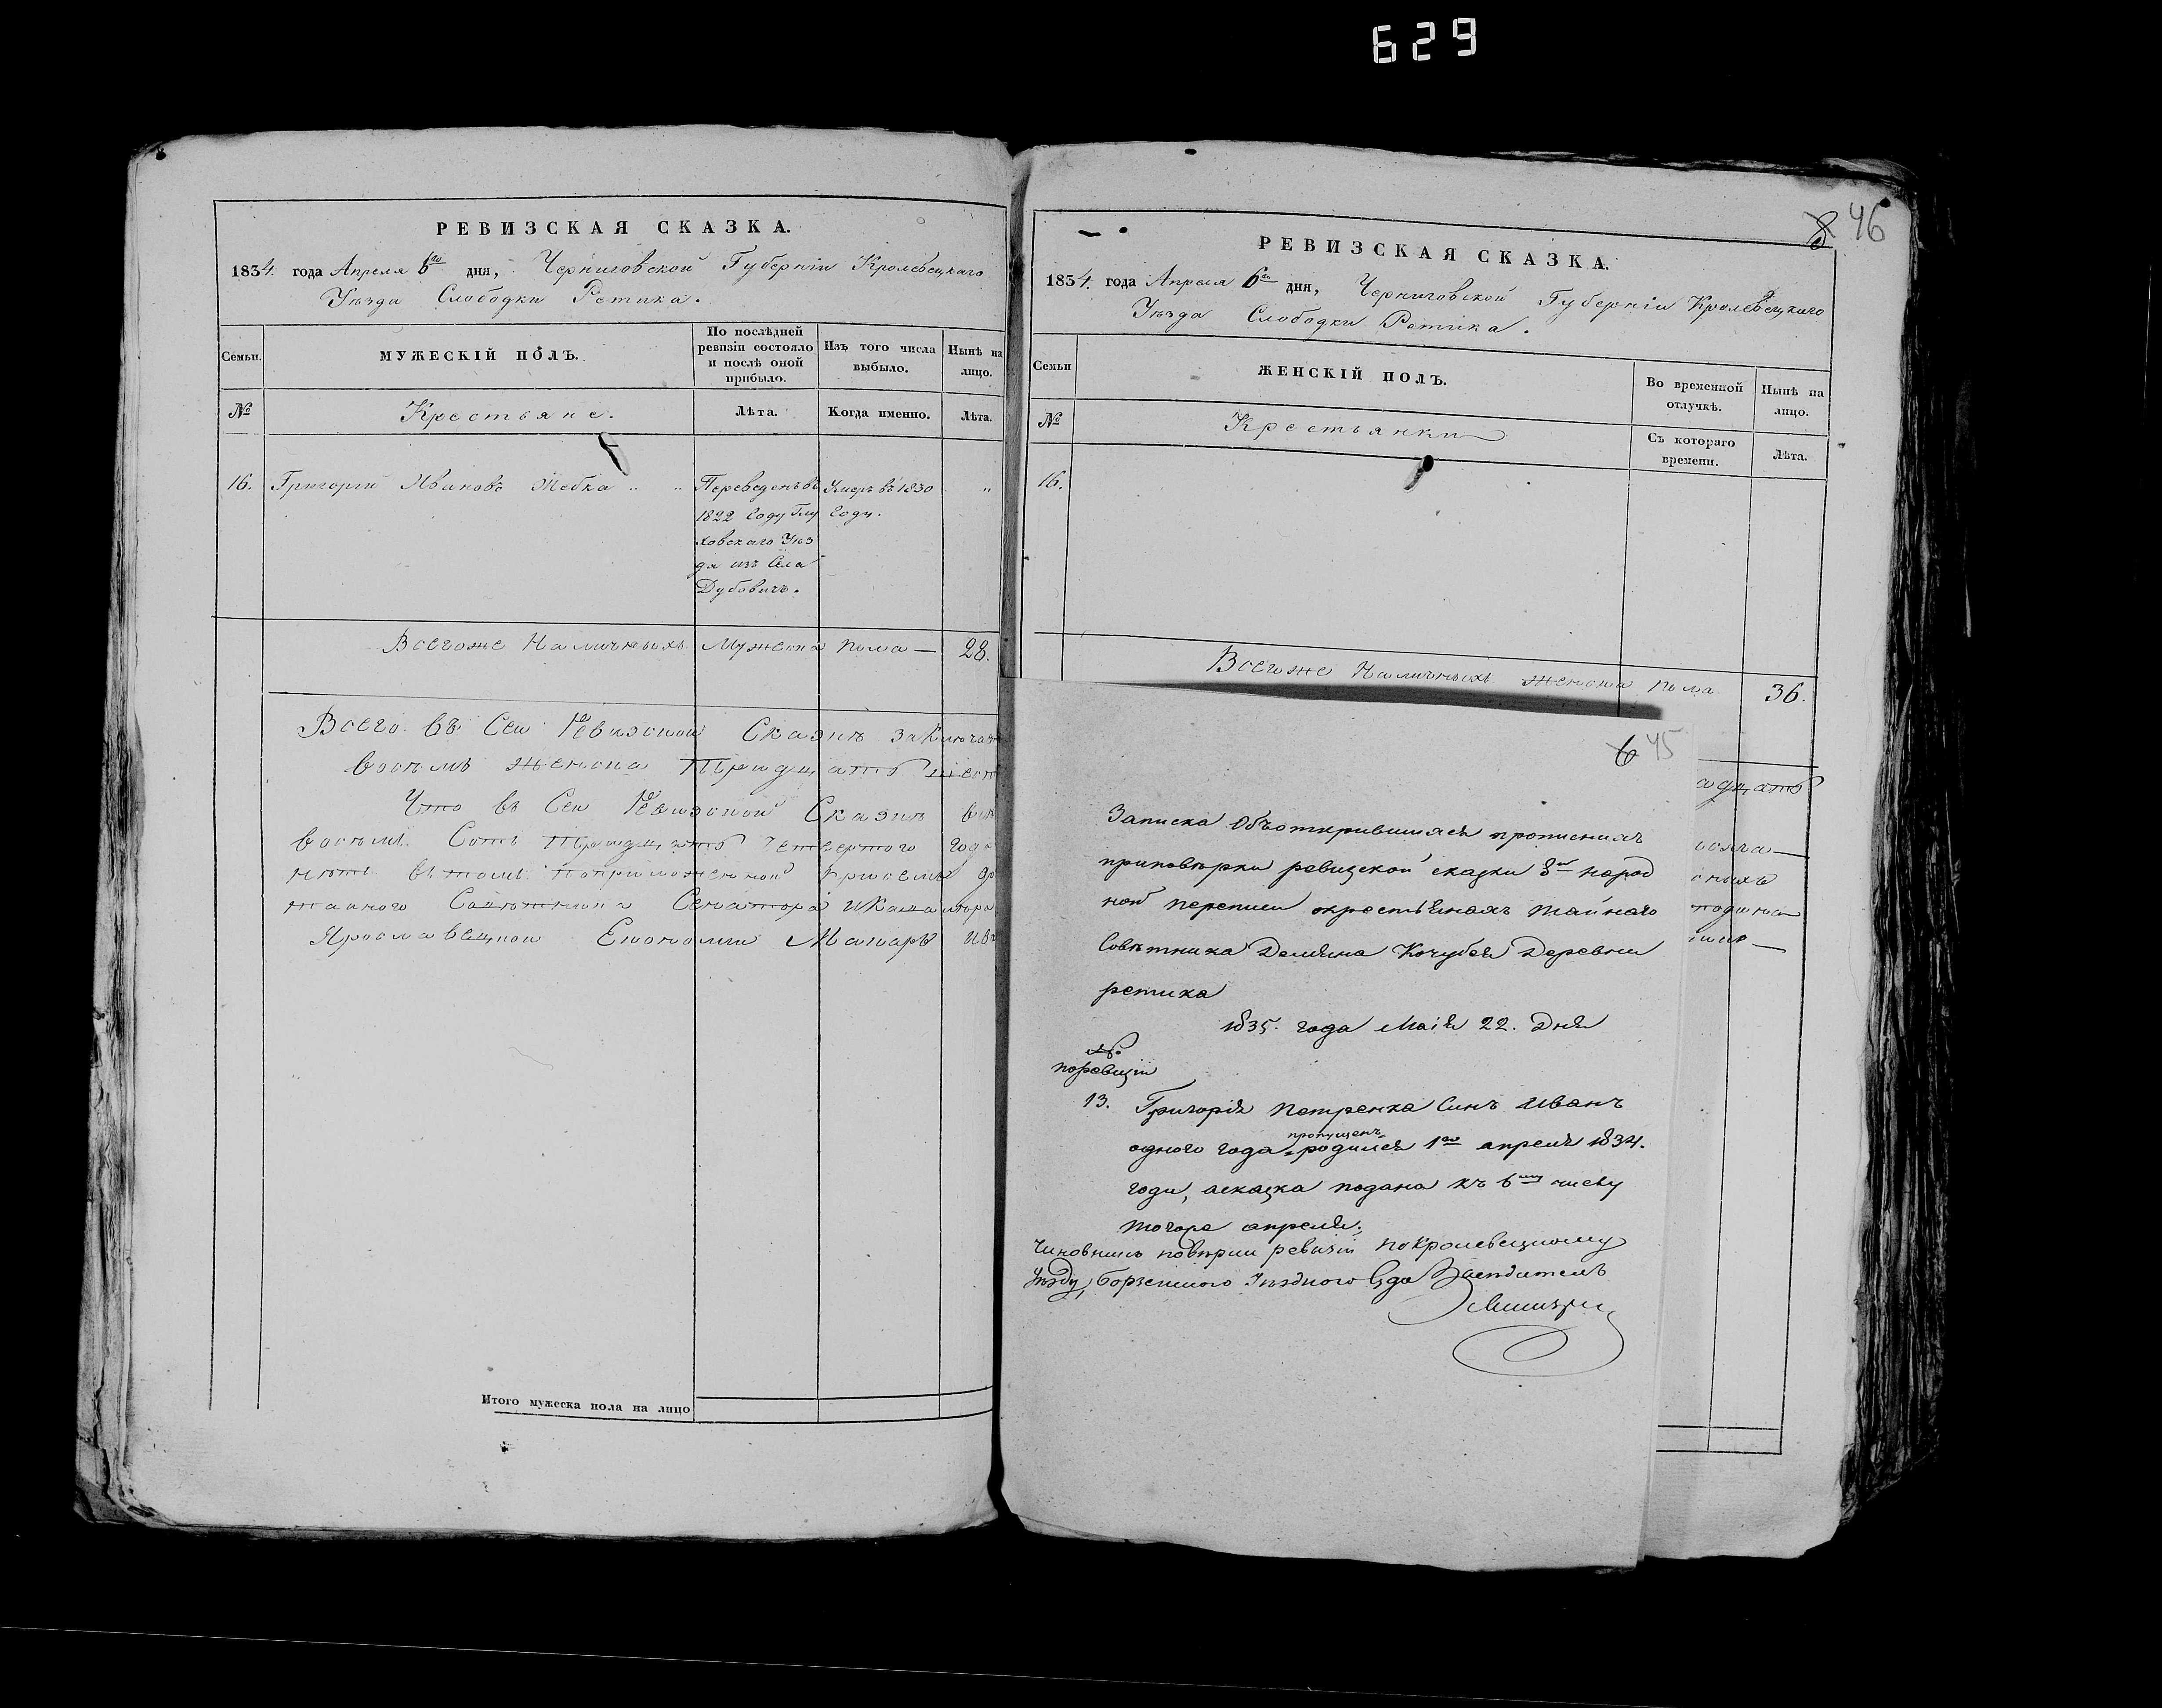 629
РЕВИЗСКАЯ СКАЗКА.
1834. года Апреля 6го дня, Черниговской Губерніи Кролевецкаго
Уѣзда Слободки Ретика.
Семьи.
МУЖЕСКІЙ ПОЛЪ.
По послѣдней ревизіи состояло и послѣ оной прибыло.
Изъ того числа выбыло.
Нынѣ на лицо.
№
Крестьяне.
Лѣта.
Когда именно.
Лѣта.
16. Григорій Ивановъ
Переведенъ въ
1822 году Глу
ховскаго Уѣз
да изъ Села
Дубовичъ.
Умеръ въ 1830
Году.
"
Всегоже Наличныхъ Мужеска пола — 28.
Всего въ Сей Ревизской Сказкѣ заключае
восемъ женска Тридцать шест
Что въ Сей Ревизской Сказкѣ
восемъ Сотъ Тридцать Четвертого года
нѣтъ въ томъ
тайного Совѣтника Сенатора и Ка
Ярославецкой Економіи
Итого мужеска пола на лицо
8 46
РЕВИЗСКАЯ СКАЗКА.
1834. года Апреля 6го дня, Черниговской Губерніи Кролевецкаго
Уѣзда Слободки Ретика.
Семьи
ЖЕНСКІЙ ПОЛЪ.
Во временной отлучкѣ.
Нынѣ на лицо.
№
Крестьянки
Съ котораго времени.
Лѣта.
16.
Всегоже Наличныхъ женска пола 36.
6 45
Записка Объоткрившихся прописнихъ
приповѣрки ревизской сказки 8ой народ
ной переписи окрестьянахъ тайнаго
Совѣтника Демяна Кочубея Деревни
ретика
1835. года Маія 22. Дня
№.
поревизіи
13. Григорія Петренка Синъ Иванъ
одного года пропущенъ родился 1го апреля 1834.
году, асказка подана къ 6му числу
тогоже апреля.
Чиновникъ повѣрки ревизіи по Кролевецкому
Уѣзду, Борзенского Уѣздного Суда Засѣдатель